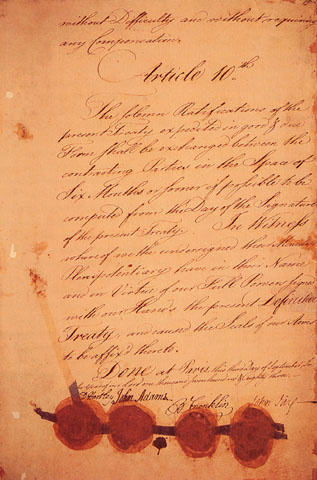 without Difficulty and without requiring
any Compensation.
Article 10th
The solemn Ratifications of the
present Treaty expedited in good & due
Form shall be exchanged between the
contracting Parties in the Space of
Six Months or sooner if possible to be
computed from the Day of the Signature
of the present Treaty. In Witness
whereof we the undersigned their Ministers
Plenipotentiary have in their Name
and in Virtue of our Full Powers signed
with our Hands the present Definitive
Treaty, and caused the Seals of our Arms
to be affix'd thereto.
Done at Paris, this third day of September, In
the year of our Lord one thousand seven hundred & eighty three.
D Hartley John Adams B Franklin John Jay